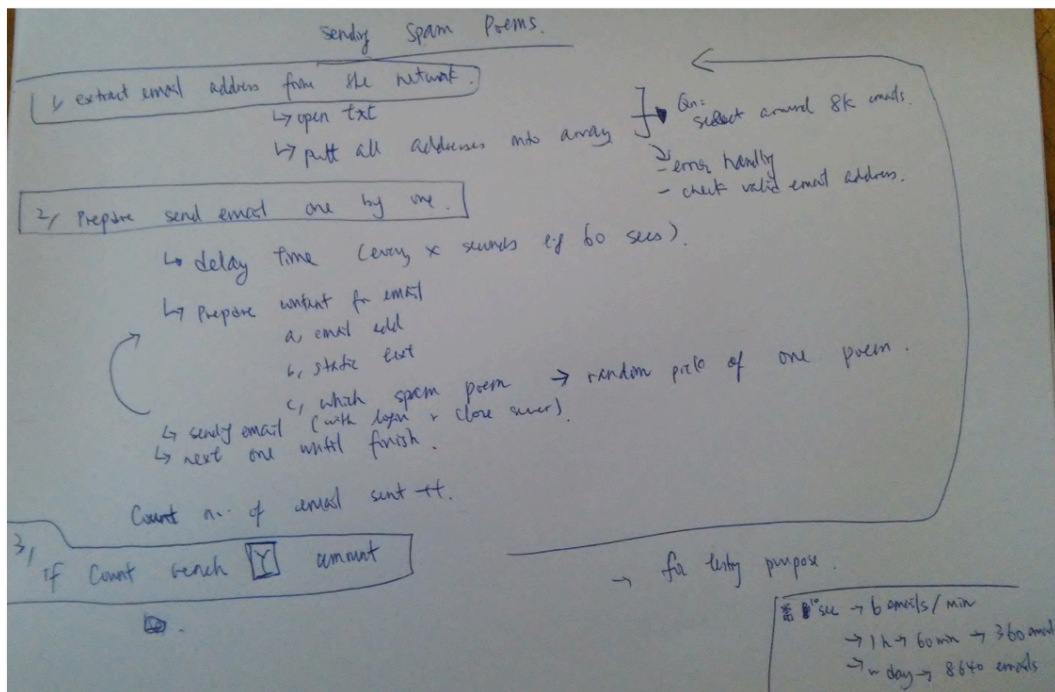 Sending Spam Poems.
1, extract email address from the network.
↳ open txt
↳ putt all addresses into array
Qn: select around 8k emails.
- error handling
- check valid email address.
2, Prepare send email one by one.
↳ delay time (every x seconds e.g 60 secs).
↳ Prepare content for email
a, email add
b, static text
c, which spam poem → random pick of one poem.
↳ sendg email (with login + close server)
↳ next one until finish.
Count no. of email sent ++.
3, if Count reach Y amount
→ for testing purpose.
10 sec → 6 emails/min
→ 1h → 60 min → 360 email
→ day → 8640 emails